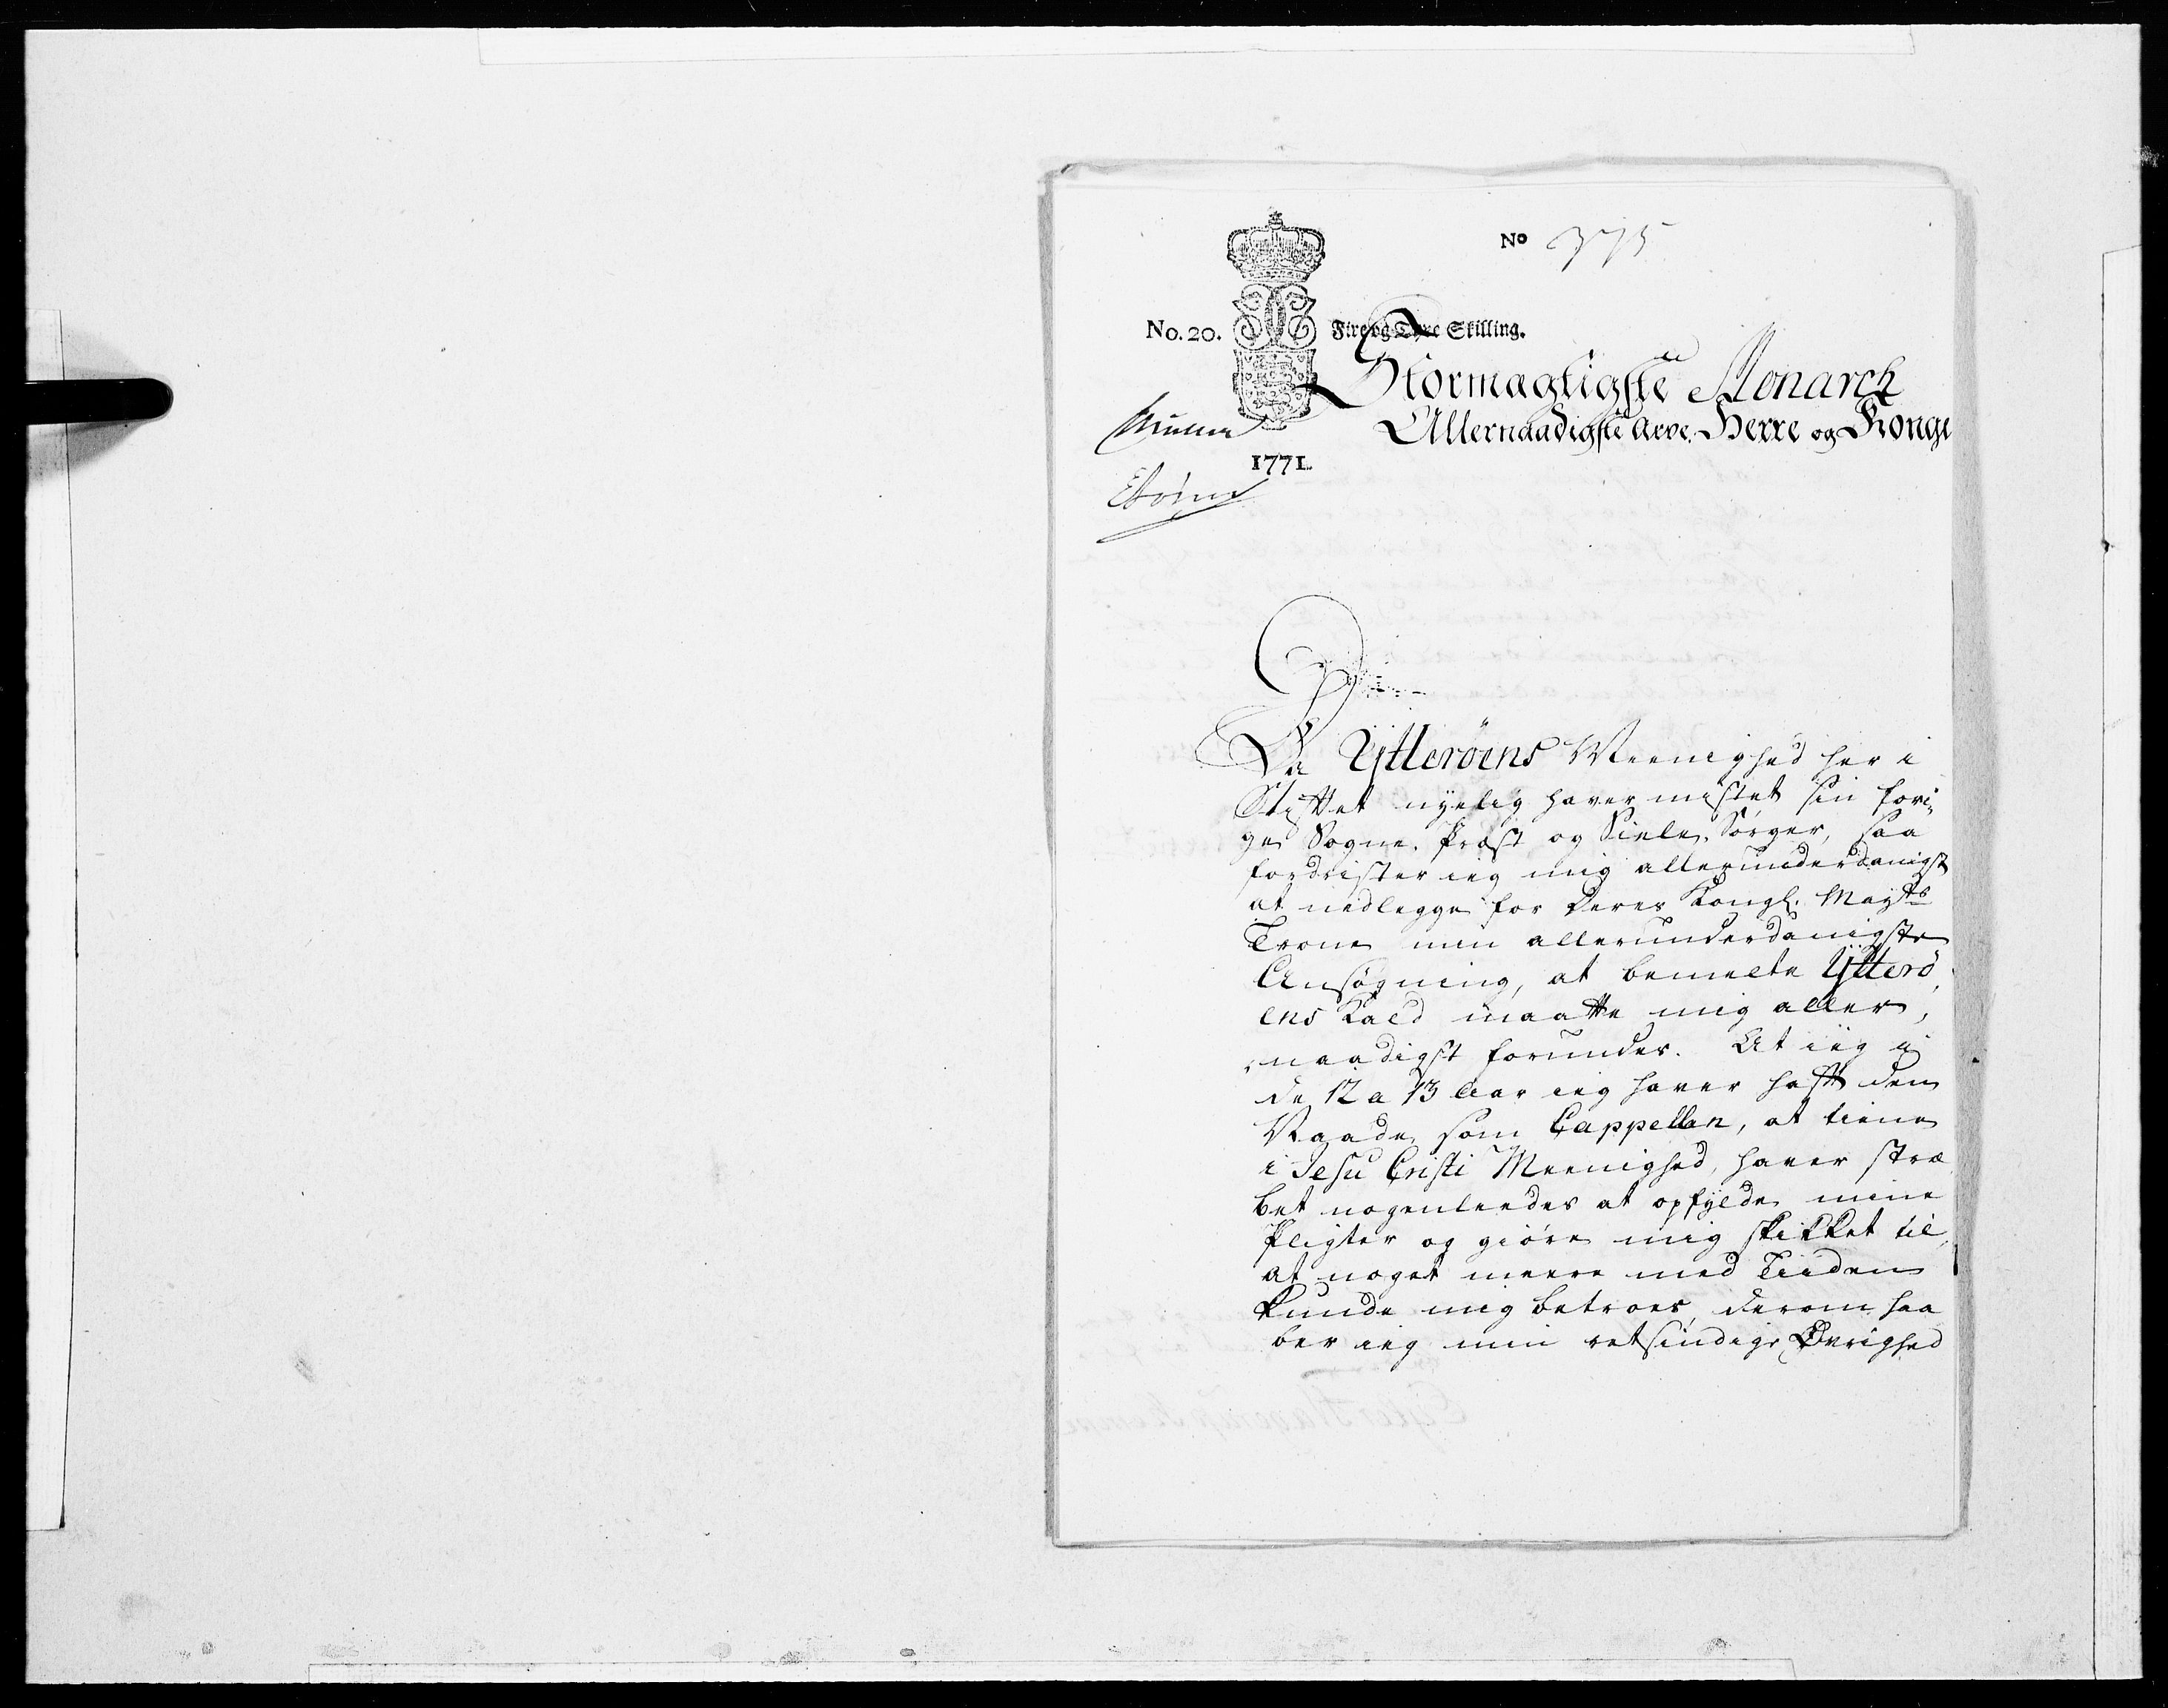 No 375
No. 20. Fire og Tyve Skilling.
Stormægtigste Monarch
Allernaadigste Arve-Herre og Konge
1771.
Da Ytterøens Meenighed her i
Stiftet nyelig haver mistet sin fori-
ge Sogne-Præst og Siele-Sørger, saa
fordrister ieg mig allerunderdanigst
at nedlegge for Deres Kongl. Mayts
Trone min allerunderdanigste
Ansøgning, at bemelte Ytterø-
ens Kald maatte mig aller-
naadigst forundes. At ieg i
de 12 a 13 Aar ieg haver haft den
Naade som Cappellan, at tiene
i Jesu Cristi Meenighed, haver stræ
bet nogenleedes at opfylde mine
Pligter og giøre mig skikket til,
at noget meere med Tiiden
kunde mig betroes, derom haa
ber ieg min retsindige Øvrighed